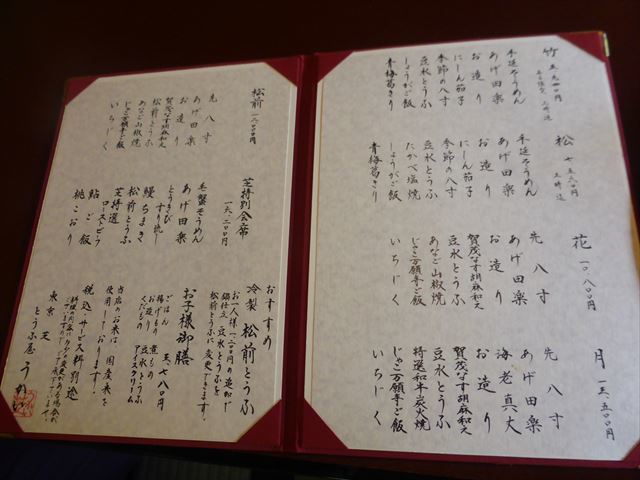 竹 五、九四〇円
三時迄
手延そうめん
あげ田楽
お造り
にしん茄子
季節の八寸
豆水とうふ
しょうがご飯
青梅葛きり
松
三時迄
手延そうめん
あげ田楽
お造り
にしん茄子
季節の八寸
豆水とうふ
たかべ塩焼
しょうがご飯
青梅葛きり
花 一〇、八〇〇円
先八寸
あげ田楽
お造り
賀茂なす胡麻和え
豆水とうふ
あなご山椒焼
じゃこ万願寺ご飯
いちじく
月 一三、五〇〇円
先八寸
あげ田楽
海老真丈
お造り
賀茂なす胡麻和え
豆水とうふ
特選和牛炭火焼
じゃこ万願寺ご飯
いちじく
松前
先八寸
あげ田楽
お造り
賀茂なす胡麻和え
松前とうふ
あなご山椒焼
じゃこ万願寺ご飯
いちじく
芝特別会席
一六、二〇〇円
毛蟹そうめん
あげ田楽
とうきびすり流し
お造り
鰻ちまき
松前とうふ
芝特選
ローストビーフ
鮎ご飯
桃こおり
おすすめ
冷製 松前とうふ
豆水とうふを
松前とうふに変更できます。
お子様御膳
三、七八〇円
ごはん 煮もの
揚げもの 豆水とうふ
お造り アイスクリーム
くだもの
当店のお米は、国産米を
使用しております。
税込・サービス料別途
東京 芝
とうふ屋うかい